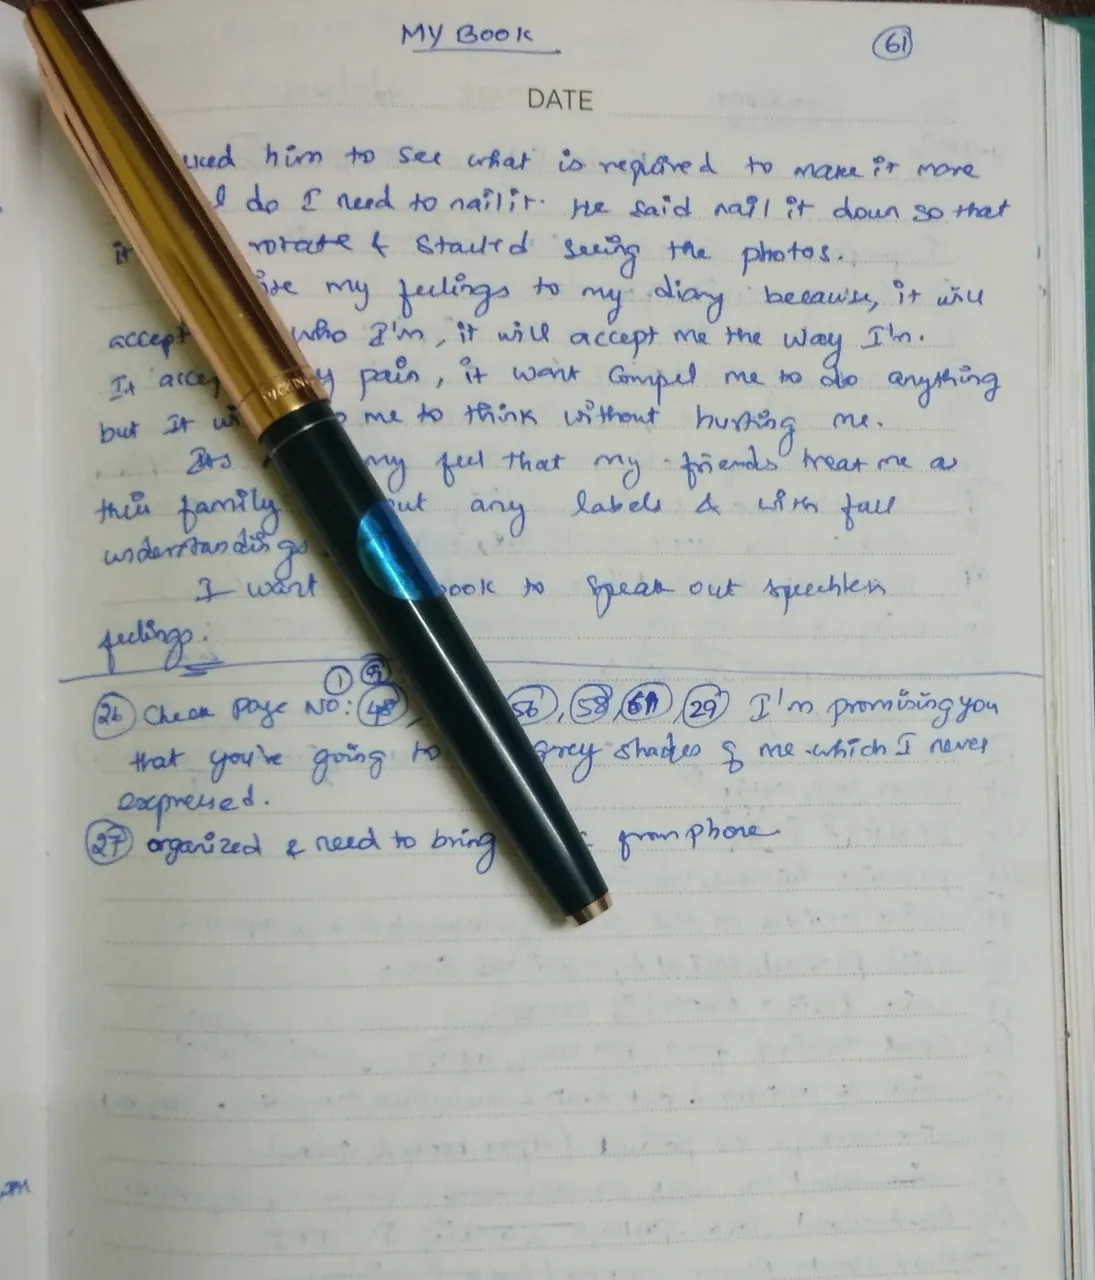 MY BOOK
61
DATE
him to see what is required to make it more
do I need to nail it. He said nail it down so that
it rotate & started seeing the photos.
my feelings to my diary because, it will
accept who I'm, it will accept me the way I'm.
It pain, it wont compel me to do anything
but It me to think without hurting me.
my feel that my friends treat me as
their family any labels & with full
understandings
I want book to speak out speechless
feelings.
26 Check Page No: 1 48, 56, 58, 61, 29 I'm promising you
that you're going to grey shades of me which I never
expressed.
27 organized & need to bring from phone